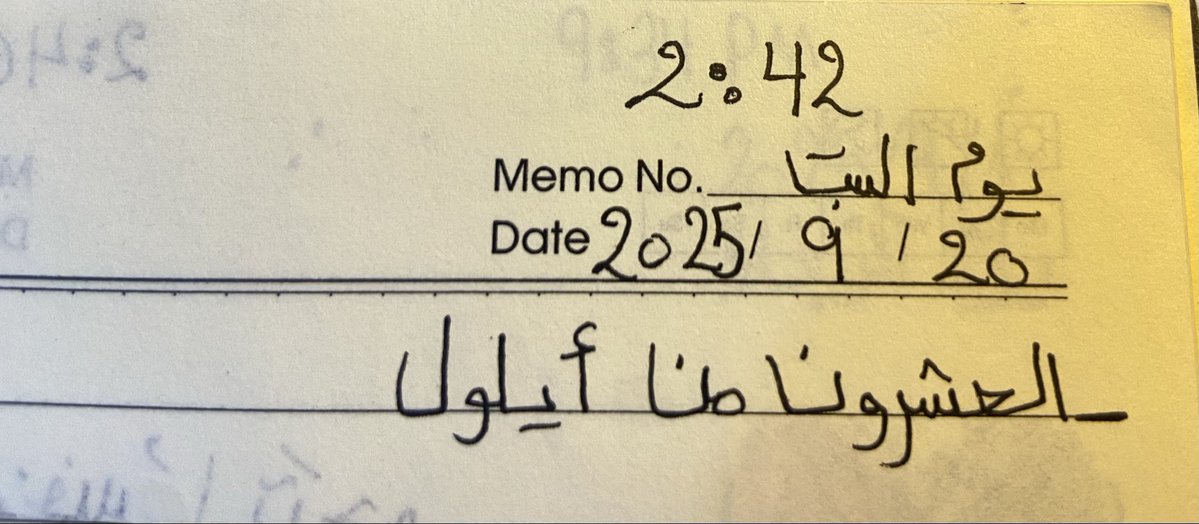 2:42
Memo No. يوم الست
Date 2025/ 9 / 20
العشرون من أيلول